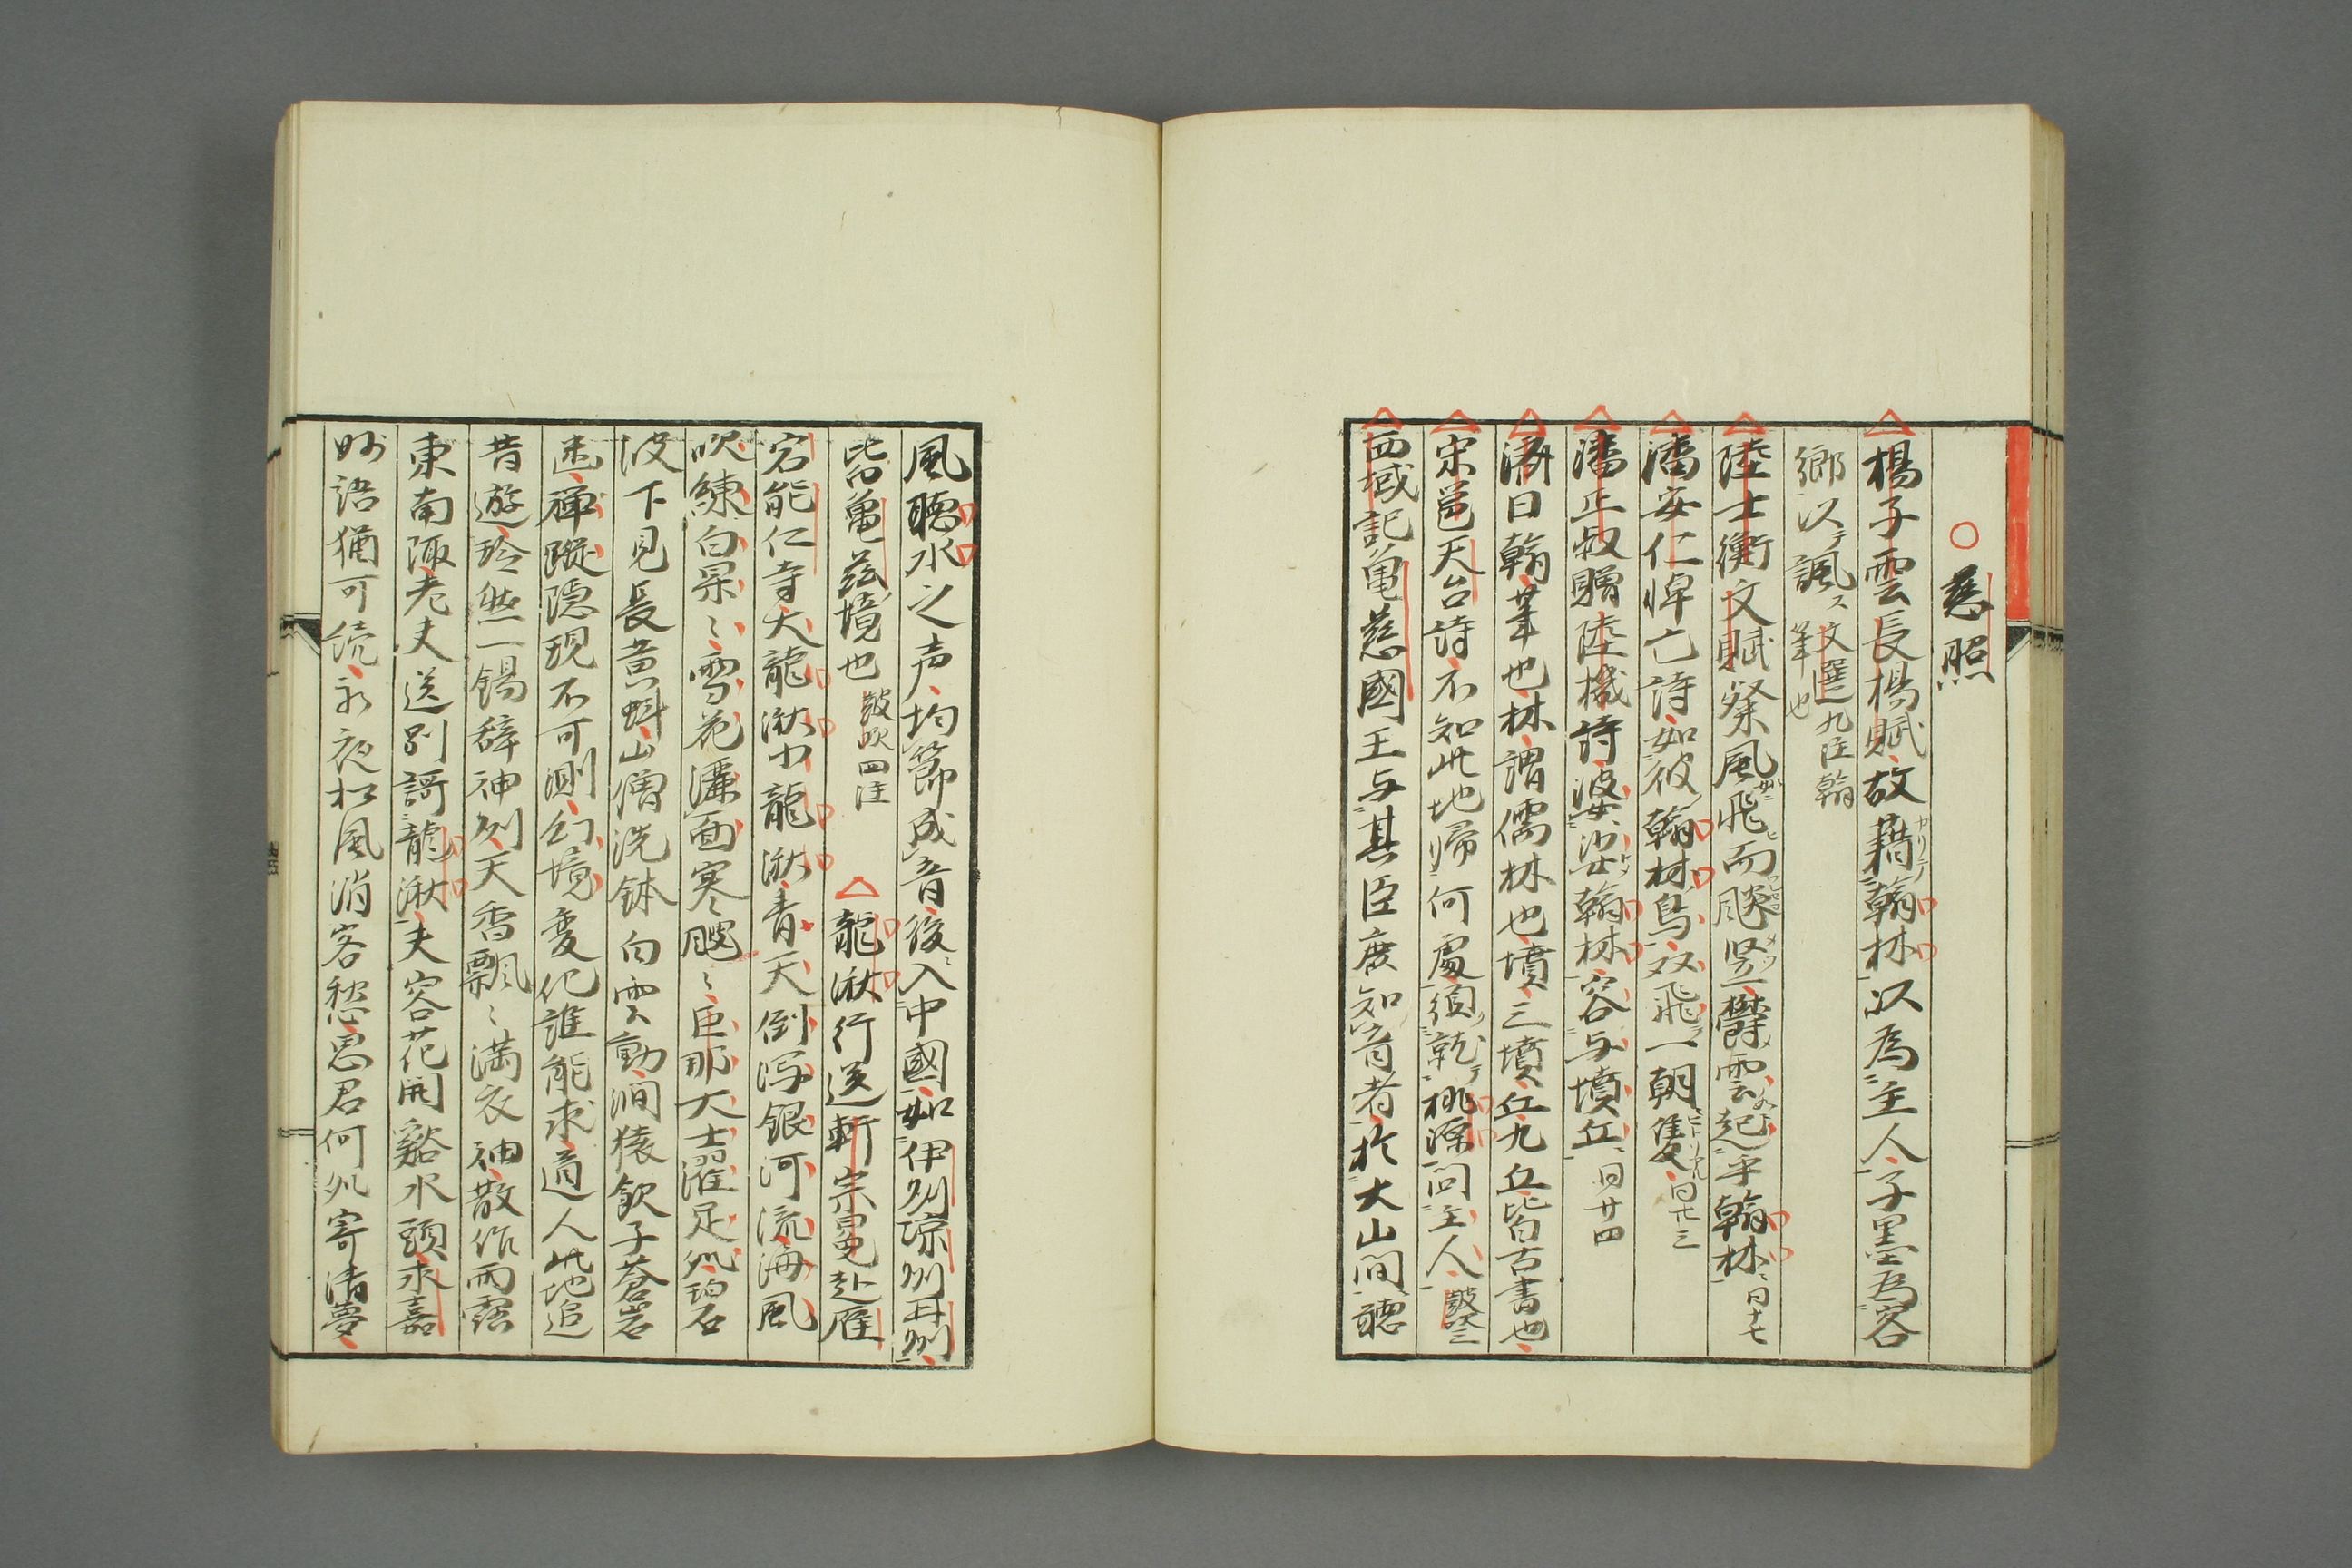 慈照
楊子雲長楊賦故藉翰林以為主人子墨為客
卿以諷 文選九注翰筆也
陸士衡文賦粲風飛而飈竪欝雲起乎翰林 同十七
潘安仁悼亡詩如彼翰林鳥双飛一朝隻 同廿三
潘正叔贈陸機詩婆娑翰林容与墳丘 同廿四
済曰翰筆也林謂儒林也墳三墳丘九丘皆古書也
宋邕天台詩不知此地帰何處須就桃源問主人 皷吹三
西域記亀慈國王与其臣庶知音者於大山間聴
風聴水之声均節成音後入中國如伊州涼州甘州
皆亀茲境也 皷吹四注 龍湫行送軒宗冕赴雁
宕能仁寺大龍湫小龍湫青天倒泻銀河流海風
吹練白杲々雪花灑面寒颼々巨那大士濯足処珀石
波下見長黄蚪山僧洗鉢白雲動澗猿飲子蒼岩
迷禅蹤隠現不可測幻境変化誰能求適人此地追
昔遊玲然一錫辞神州天香飄々満衣袖散作雨露
東南陬老夫送別謌龍湫夫容花開谿水頭永嘉
妙語猶可続永夜松風消客愁思君何処寄清夢